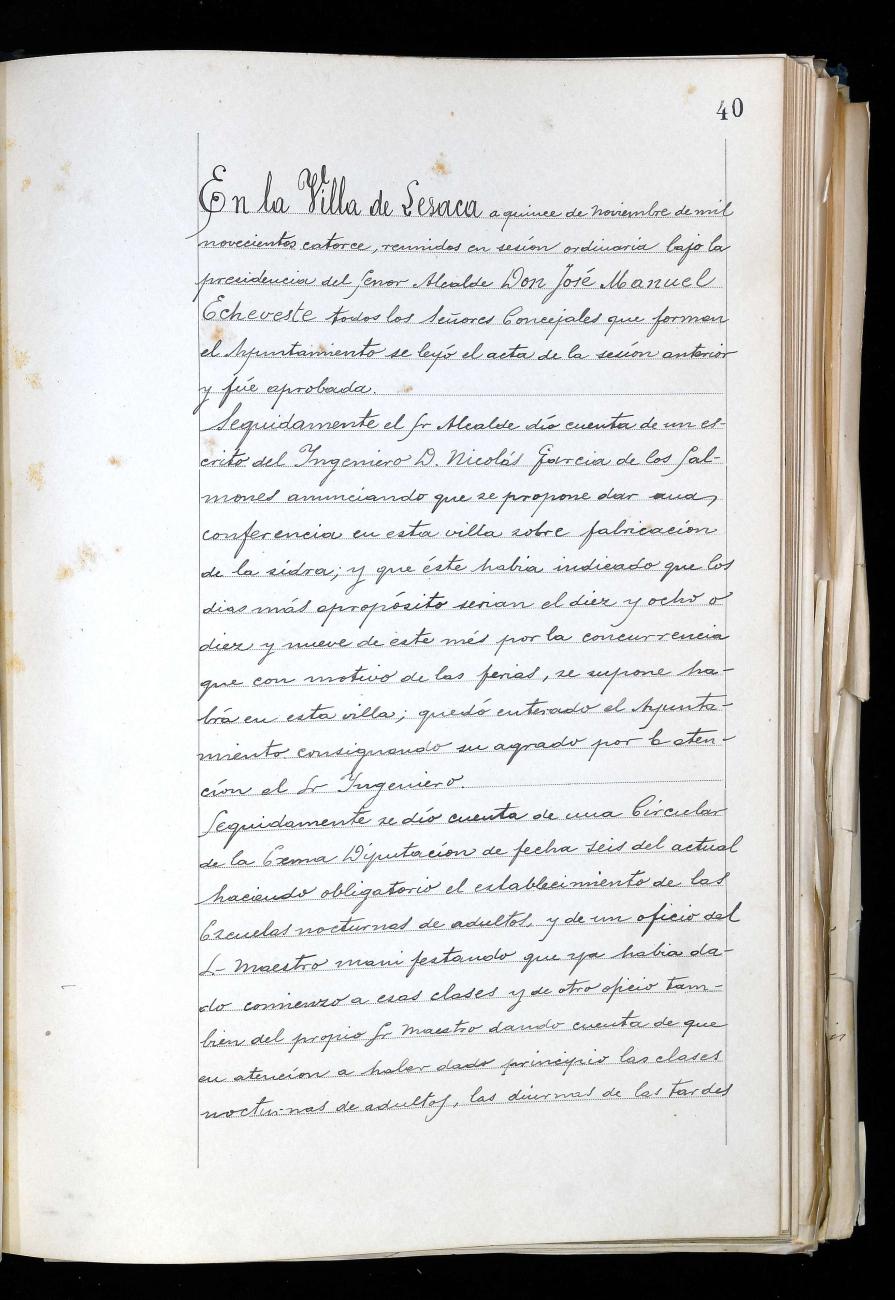 40
En la Villa de Lesaca a quince de Noviembre de mil
novecientos catorce, reunidos en sesión ordinaria bajo la
presidencia del Señor Alcalde Don José Manuel
Echeveste todos los Señores Concejales que forman
el Ayuntamiento se leyó el acta de la sesión anterior
y fúe aprobada.
Seguidamente el Sr Alcalde dío cuenta de un es-
crito del Ingeniero D. Nicolás Garcia de los Sal-
mones anunciando que se propone dar una
conferencia en esta villa sobre fabricación
de la sidra; y que éste habia indicado que los
dias más apropósito serian el diez y ocho o
diez y nueve de este més por la concurrencia
que con motivo de las ferias, se supone ha-
brá en esta villa; quedó enterado el Ayunta-
miento consignando su agrado por la aten-
ción al Sr Ingeniero.
Seguidamente se dío cuenta de una Circular
de la Exma Diputación de fecha seis del actual
haciendo obligatorio el establecimiento de las
Escuelas nocturnas de adultos, y de un oficio del
Sr Maestro manifestando que ya habia da-
do comienzo a esas clases y de otro oficio tam-
bien del propio Sr Maestro dando cuenta de que
en atención a haber dado principio las clases
nocturnas de adultos, las diurnas de las tardes